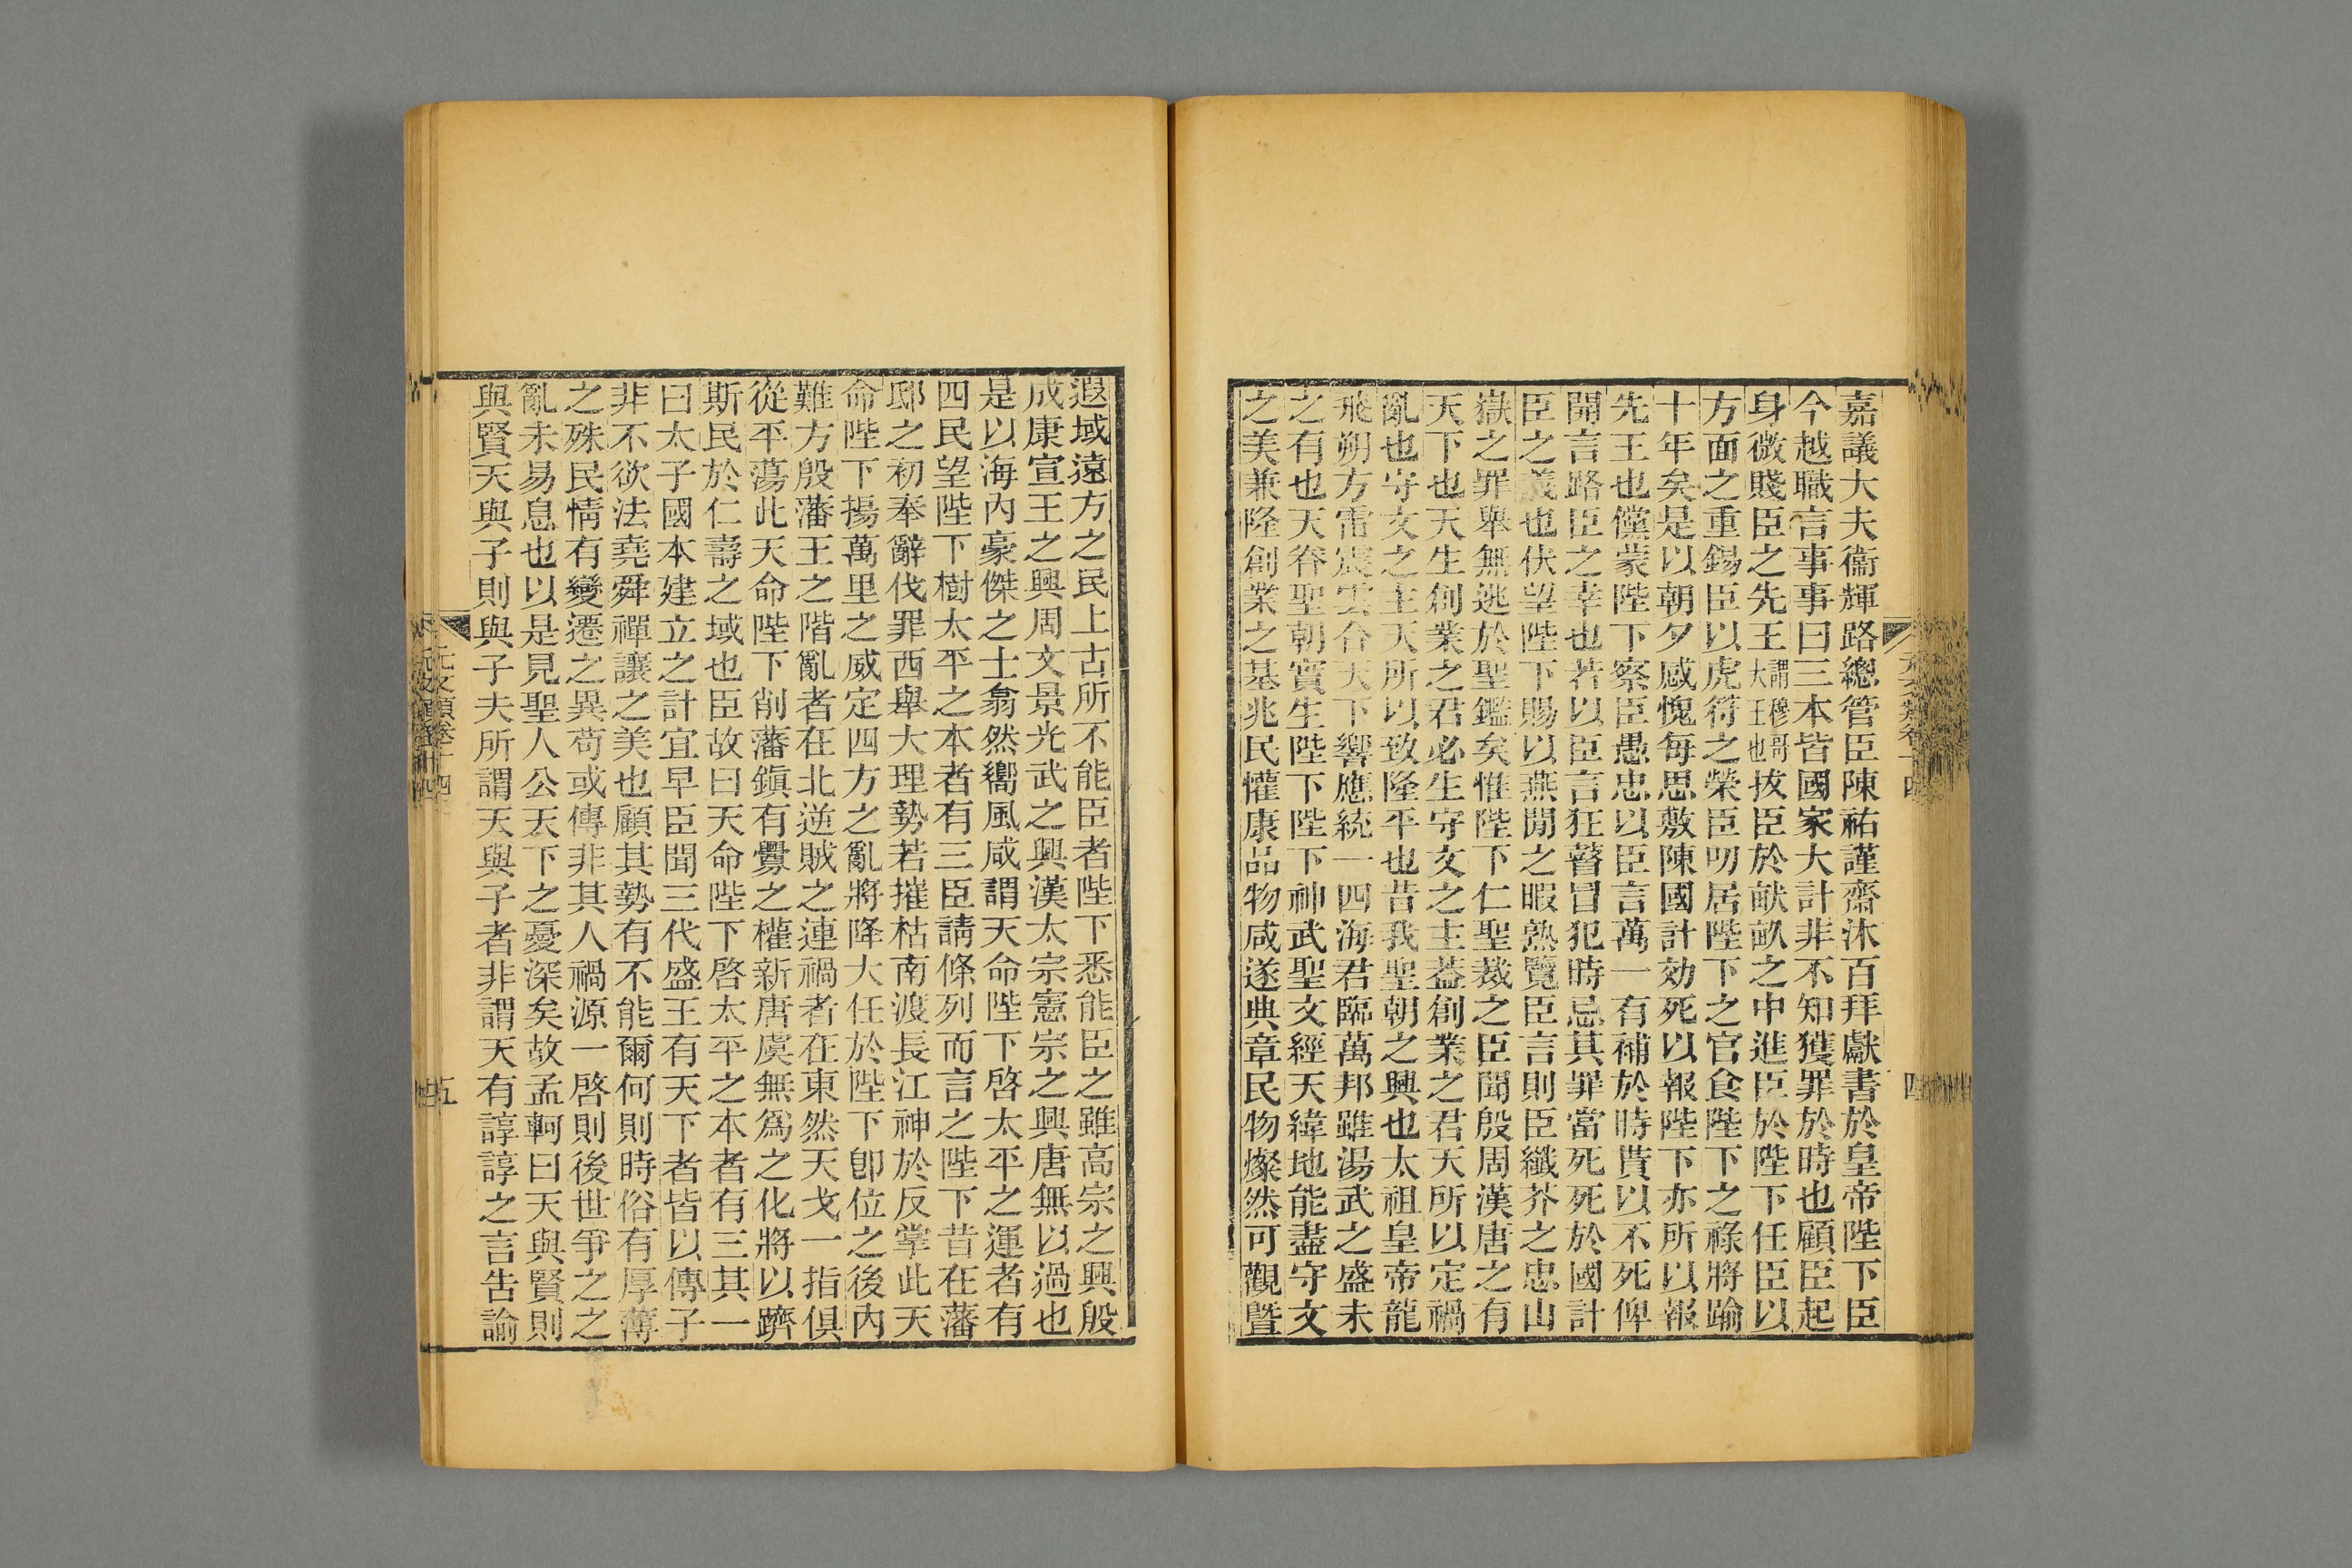 嘉議大夫衞輝路總管臣陳祐謹齋沐百拜獻書於皇帝陛下臣
今越職言事事曰三本皆國家大計非不知獲罪於時也顧臣起
身微賤臣之先王謂穆哥大王也拔臣於畎畝之中進臣於陛下任臣以
方面之重錫臣以虎符之榮臣叨居陛下之官食陛下之祿將踰
十年矣是以朝夕感愧每思敷陳國計効死以報陛下亦所以報
先王也儻蒙陛下察臣愚忠以臣言萬一有補於時貰以不死俾
開言路臣之幸也若以臣言狂瞽冒犯時忌其罪當死死於國計
臣之義也伏望陛下賜以燕閒之暇熟覽臣言則臣纖芥之忠山
嶽之罪舉無逃於聖鑑矣惟陛下仁聖裁之臣聞殷周漢唐之有
天下也天生創業之君必生守文之主葢創業之君天所以定禍
亂也守文之主天所以致隆平也昔我聖朝之興也太祖皇帝龍
飛朔方雷震雲合天下響應統一四海君臨萬邦雖湯武之盛未
之有也天眷聖朝實生陛下陛下神武聖文經天緯地能盡守文
之美兼隆創業之基兆民懽康品物咸遂典章民物燦然可觀曁
遐域遠方之民上古所不能臣者陛下悉能臣之雖高宗之興殷
成康宣王之興周文景光武之興漢太宗憲宗之興唐無以過也
是以海內豪傑之士翕然嚮風咸謂天命陛下啓太平之運者有
四民望陛下樹太平之本者有三臣請條列而言之陛下昔在藩
邸之初奉辭伐罪西舉大理勢若摧枯南渡長江神於反掌此天
命陛下揚萬里之威定四方之亂將降大任於陛下卽位之後內
難方殷藩王之階亂者在北逆賊之連禍者在東然天戈一指俱
從平蕩此天命陛下削藩鎭有釁之權新唐虞無爲之化將以躋
斯民於仁壽之域也臣故曰天命陛下啓太平之本者有三其一
曰太子國本建立之計宜早臣聞三代盛王有天下者皆以傳子
非不欲法堯舜禪讓之美也顧其勢有不能爾何則時俗有厚薄
之殊民情有變遷之異苟或傳非其人禍源一啓則後世爭之之
亂未易息也以是見聖人公天下之憂深矣故孟軻曰天與賢則
與賢天與子則與子夫所謂天與子者非謂天有諄諄之言告諭
五